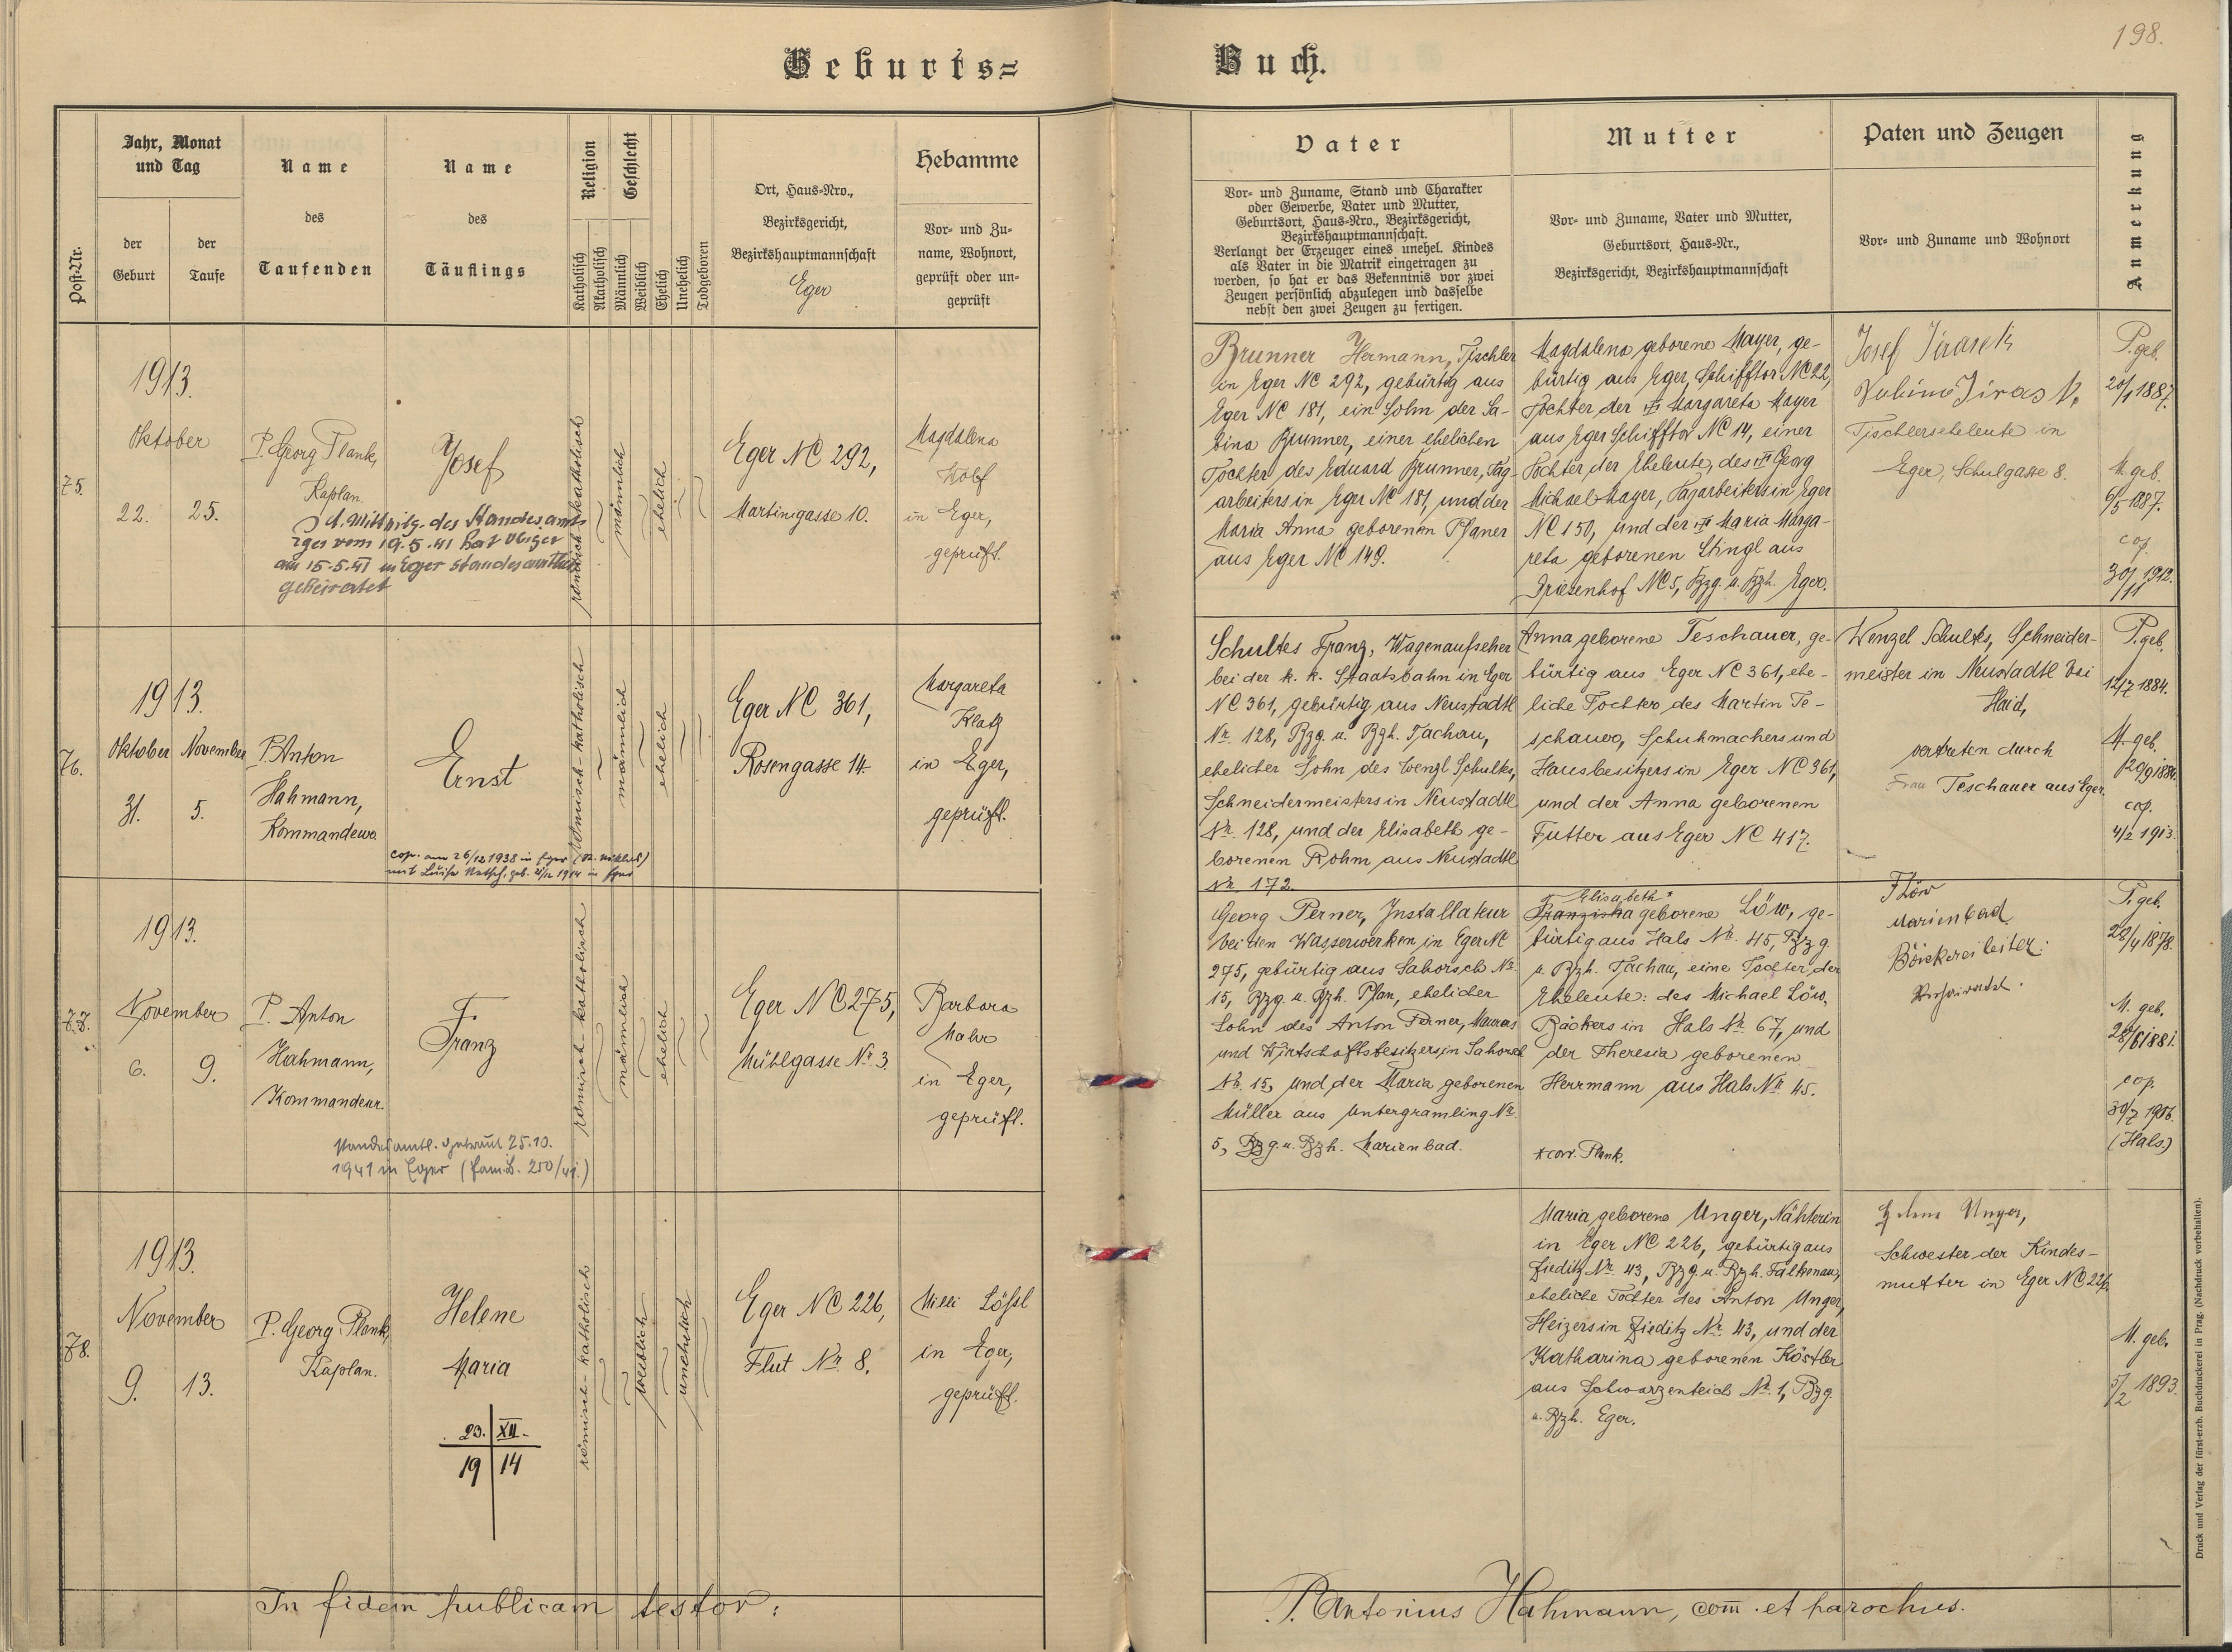 198.
Geburts=
Buch.
Post-Nr.
Jahr, Monat
und Tag
der
Geburt
der
Taufe
Name
des
Taufenden
Name
des
Täuflings
Religion
Katholisch
Akatholisch
Geschlecht
Männlich
Weiblich
Ehelich
Unehelich
Todgeboren
Ort, Haus-Nro.,
Bezirksgericht,
Bezirkshauptmannschaft
Eger
Hebamme
Vor- und Zu-
name, Wohnort,
geprüft oder un-
geprüft
Vater
Vor- und Zuname, Stand und Charakter
oder Gewerbe, Vater und Mutter,
Geburtsort, Haus-Nro., Bezirksgericht,
Bezirkshauptmannschaft.
Verlangt der Erzeuger eines unehel. Kindes
als Vater in die Matrik eingetragen zu
werden, so hat er das Bekenntnis vor zwei
Zeugen persönlich abzulegen und dasselbe
nebst den zwei Zeugen zu fertigen.
Mutter
Vor- und Zuname, Vater und Mutter,
Geburtsort, Haus-Nr.,
Bezirksgericht, Bezirkshauptmannschaft
Paten und Zeugen
Vor- und Zuname und Wohnort
Anmerkung
75.
1913.
Oktober
22. 25.
P. Georg Plank,
Kaplan.
Josef
des Standesamts
Eger vom 19.5.41 hat obiger
am 15.5.41 in Eger standesamtlich
geheiratet
römisch-katholisch
männlich
ehelich
Eger NC 292,
Martinigasse 10.
Magdalena
Wolf
in Eger,
geprüft.
Brunner Hermann, Tischler
in Eger NC 292, gebürtig aus
Eger NC 181, ein Sohn der Sa-
bina Brunner, einer ehelichen
Tochter des Eduard Brunner, Tag-
arbeiters in Eger NC 181, und der
Maria Anna geborenen Pfaner
aus Eger NC 149.
Magdalena geborene Mayer, ge-
bürtig aus Eger, Schifftor NC 22,
Tochter der Margareta Mayer
aus Eger Schifftor NC 14, einer
Tochter der Eheleute, des Georg
Michael Mayer, Tagarbeiters in Eger
NC 150, und der Maria Marga-
reta geborenen Stingl aus
Driesenhof NC 5, Bzg. u. Bzh. Eger.
Josef Jirasek
Tischlerseheleute in
Eger, Schulgasse 8.
P. geb.
20/1 1887.
M. geb.
6/5 1887.
cop.
30/11 1912.
76.
1913.
Oktober November
31. 5.
P. Anton
Hahmann,
Kommandeur
Ernst
cop. am 26/12 1938 in Eger (St. Niklas)
mit Luise
römisch-katholisch
männlich
ehelich
Eger NC 361,
Rosengasse 14.
Margareta
Klatz
in Eger,
geprüft.
Schultes Franz, Wagenaufseher
bei der k. k. Staatsbahn in Eger
NC 361, gebürtig aus Neustadtl
Nr. 128, Bzg. u. Bzh. Tachau,
ehelicher Sohn des Wenzl Schultes,
Schneidermeisters in Neustadtl
Nr. 128, und der Elisabeth ge-
borenen Rohm aus Neustadtl
Nr. 172.
Anna geborene Teschauer, ge-
bürtig aus Eger NC 361, ehe-
liche Tochter des Martin Te-
schauer, Schuhmachers und
Hausbesitzers in Eger NC 361,
und der Anna geborenen
Futter aus Eger NC 417.
Wenzel Schultes, Schneider-
meister in Neustadtl bei
Haid,
vertreten durch
Frau Teschauer aus Eger.
P. geb.
12/7 1884.
M. geb.
cop.
4/2 1913.
77.
1913.
November
6. 9.
P. Anton
Hahmann,
Kommandeur.
Franz
standesamtl. getraut 25.10.
1941 in Eger (Fam.B. 250/41.)
römisch-katholisch
männlich
ehelich
Eger NC 275,
Mühlgasse Nr. 3.
Barbara
Mahr
in Eger,
geprüft.
Georg Perner, Installateur
bei den Wasserwerken in Eger NC
275, gebürtig aus Sahorsch Nr.
15, Bzg. u. Bzh. Plan, ehelicher
Sohn des Anton Perner, Maurers
und Wirtschaftsbesitzers in Sahorsch
Nr. 15, und der Maria geborenen
Müller aus Untergramling Nr.
5, Bzg. u. Bzh. Marienbad.
Elisabeth*
Franziska geborene Löw, ge-
bürtig aus Hals Nr. 45, Bzg.
u. Bzh. Tachau, eine Tochter der
Eheleute: des Michael Löw,
Bäckers in Hals Nr. 67, und
der Theresia geborenen
Herrmann aus Hals Nr. 45.
* corr. Plank.
F Löw
Marienbad
P. geb.
28/4 1878.
M. geb.
28/6 1881.
cop.
30/7 1906
(Hals.)
78.
1913.
November
9. 13.
P. Georg Plank,
Kaplan.
Helene
Maria
23. XII.
19 14
römisch-katholisch
weiblich
unehelich
Eger NC 226,
Flut Nr. 8.
Milli Lößl
in Eger,
geprüft.
Maria geborene Unger, Nähterin
in Eger NC 226, gebürtig aus
Zieditz Nr. 43, Bzg. u. Bzh. Falkenau,
eheliche Tochter des Anton Unger,
Heizers in Zieditz Nr. 43, und der
Katharina geborenen Köstler
aus Schwarzenteich Nr. 1, Bzg.
u. Bzh. Eger.
Unger,
Schwester der Kindes-
mutter in Eger NC 226.
M. geb.
5/2 1893.
In fidem publicam testor:
P. Antonius Hahmann, com. et parochus.
Druck und Verlag der fürst-erzb. Buchdruckerei in Prag. (Nachdruck vorbehalten).